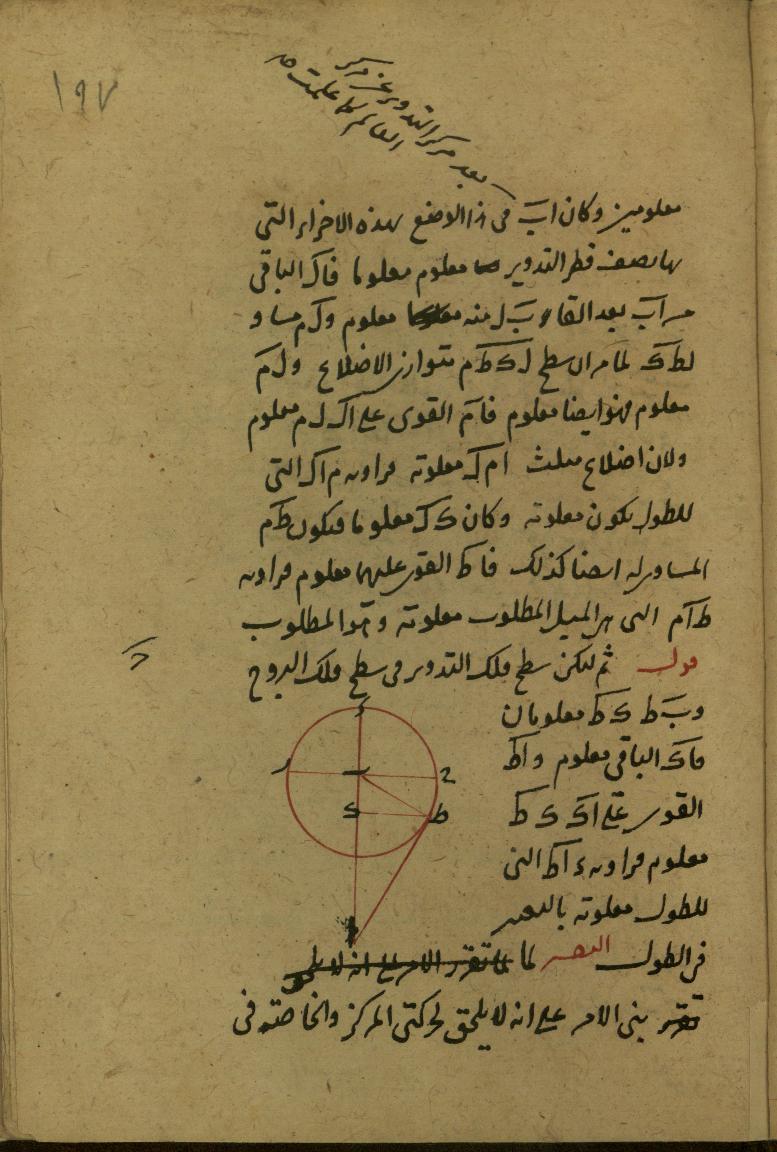 ١٩٧
بعد مركز التدوير عن مركز
العالم كما علمت
معلومين وكان اب فى هذا الوضع بهذه الاجزاء التى
بها نصف قطر التدوير معلوم معلوما فاك الباقى
من اب بعد القاء ب ل منه معلوم ول م مساو
لط ك لما مر ان سطح ل ك ط م متوازى الاضلاع ول م
معلوم فهو ايضا معلوم فام القوى على ال ل م معلوم
ولان اضلاع مثلث ام ك معلومة فزاوية م اك التى
للطول يكون معلومة وكان ك ل معلوما فيكون ط م
المساوى له ايضا كذلك فاط القوى عليهما معلوم فزاوية
ط ا م التى هى الميل المطلوب معلومة وهو المطلوب
قوله ثم ليكن سطح فلك التدوير فى سطح فلك البروج
وب ك ط ك معلومان
فاك الباقى معلوم واط
القوى على اك ك ط
معلوم فزاوية ء اط التى
للطول معلومة
فى الطول لما
تقرر بنى الامر على انه لا يلحق لحركتى المركز والخاصة فى
ء
ر
ب
ح
ك
ط